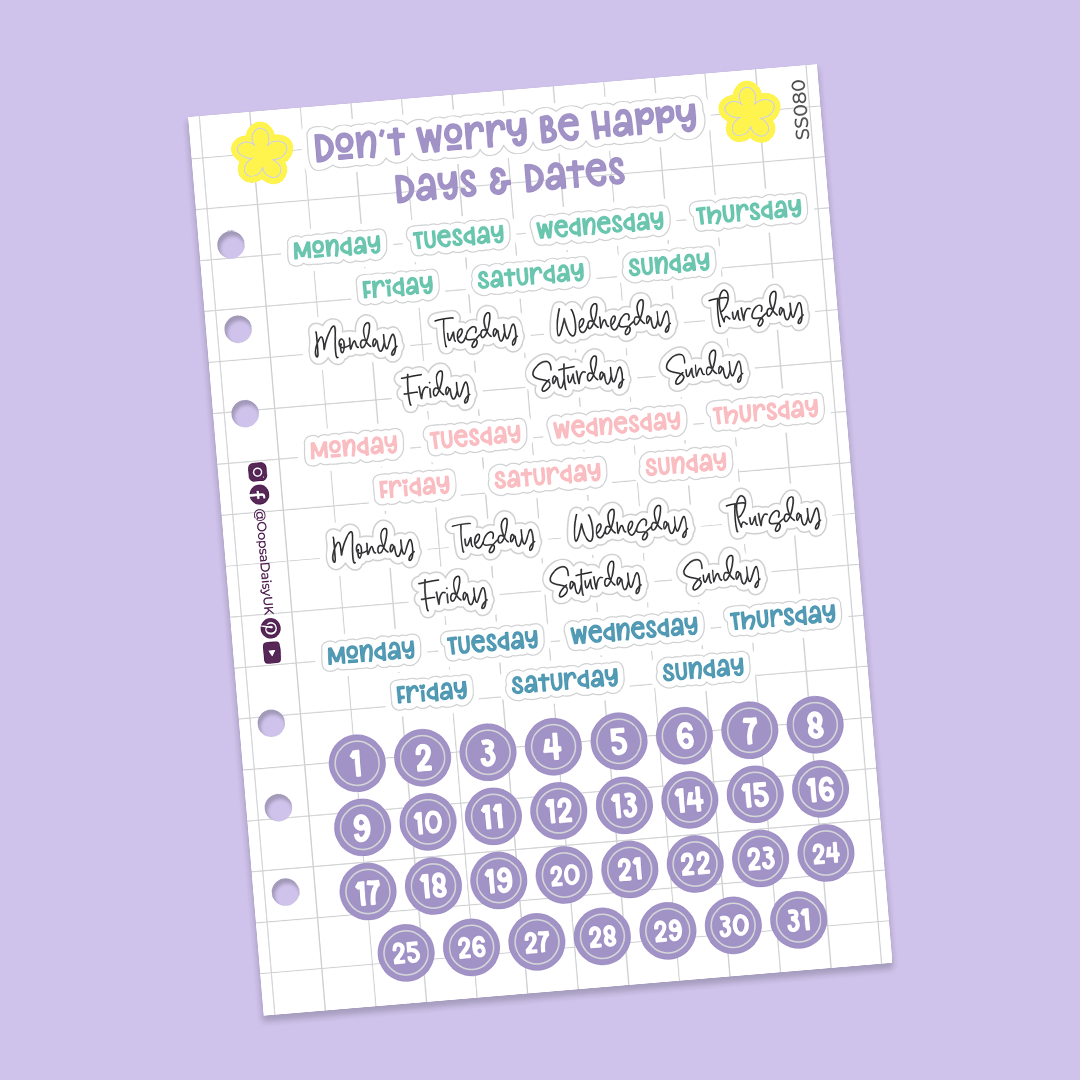 Don't Worry Be Happy
SS080
Days & Dates
Monday Tuesday Wednesday Thursday
Friday Saturday Sunday
Monday Tuesday Wednesday Thursday
Friday Saturday Sunday
Monday Tuesday Wednesday Thursday
Friday Saturday Sunday
Monday Tuesday Wednesday Thursday
Friday Saturday Sunday
Monday Tuesday Wednesday Thursday
Friday Saturday Sunday
@OopsaDaisyUK
1 2 3 4 5 6 7 8
9 10 11 12 13 14 15 16
17 18 19 20 21 22 23 24
25 26 27 28 29 30 31